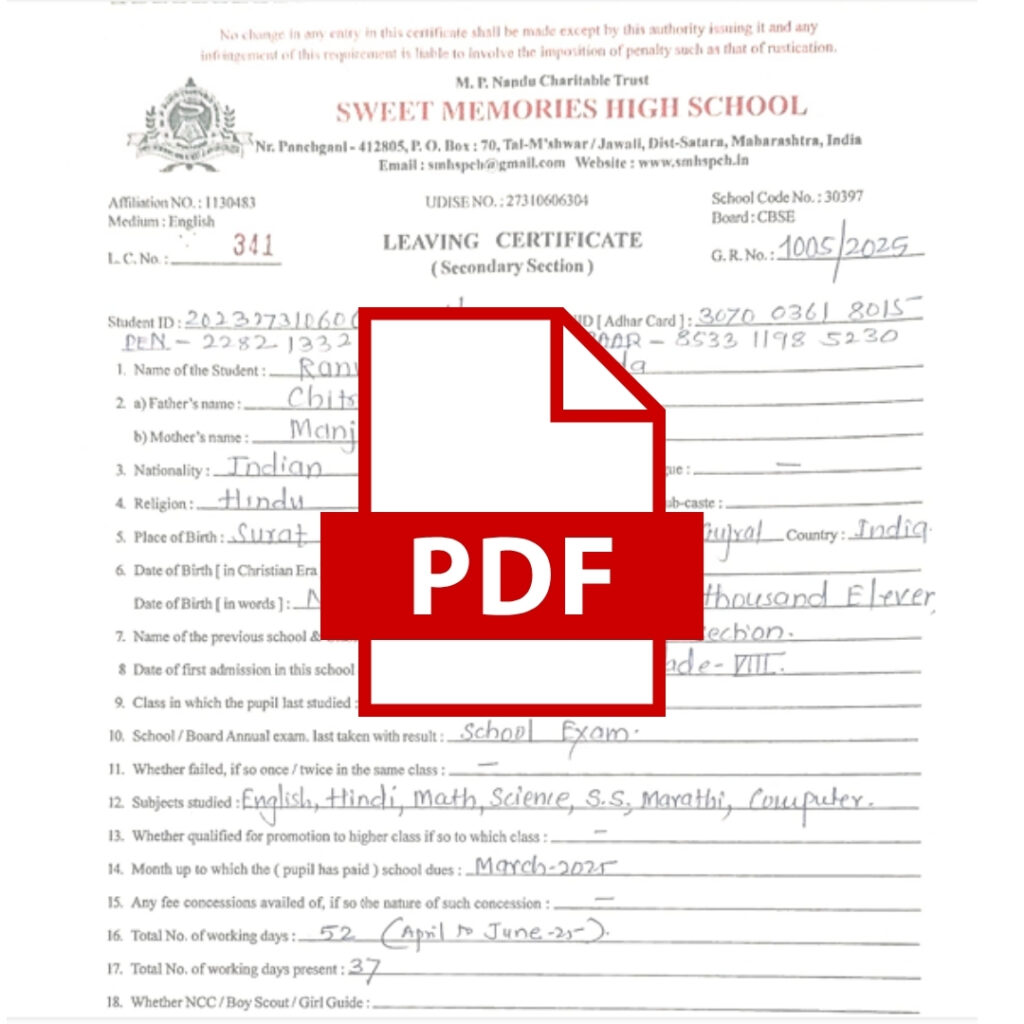 No change in any entry in this certificate shall be made except by this authority issuing it and any
infringement of this requirement is liable to involve the imposition of penalty such as that of rustication.
M. P. Nandu Charitable Trust
SWEET MEMORIES HIGH SCHOOL
Nr. Panchgani - 412805, P. O. Box : 70, Tal-M'shwar / Jawali, Dist-Satara, Maharashtra, India
Email : smhspch@gmail.com Website : www.smhspch.in
Affiliation NO. : 1130483 UDISE NO. : 27310606304 School Code No. : 30397
Medium : English Board : CBSE
L. C. No. : 341 LEAVING CERTIFICATE G. R. No. : 1005/2025
( Secondary Section )
Student ID : 20232731060 ID [ Adhar Card ] : 3070 0361 8015
PEN - 2282 1332 - 8533 1198 5230
1. Name of the Student :
2. a) Father's name :
b) Mother's name :
3. Nationality : Indian
4. Religion : Hindu b-caste :
5. Place of Birth : Surat Country : India
6. Date of Birth [ in Christian Era
PDF
Date of Birth [ in words ] : thousand Eleven
7. Name of the previous school &
8 Date of first admission in this school VIII.
9. Class in which the pupil last studied :
10. School / Board Annual exam. last taken with result : School Exam.
11. Whether failed, if so once / twice in the same class : —
12. Subjects studied : English, Hindi, Math, Science, S.S, Marathi, Computer.
13. Whether qualified for promotion to higher class if so to which class : —
14. Month up to which the ( pupil has paid ) school dues : March-2025
15. Any fee concessions availed of, if so the nature of such concession : —
16. Total No. of working days : 52 (April to June-25).
17. Total No. of working days present : 37
18. Whether NCC / Boy Scout / Girl Guide :